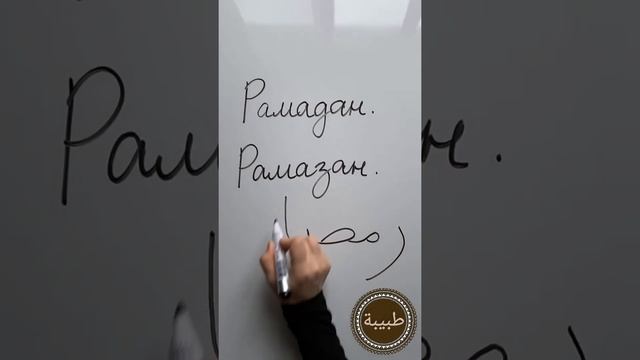 Рамадан.
Рамазан.
رمصا
طبيبة